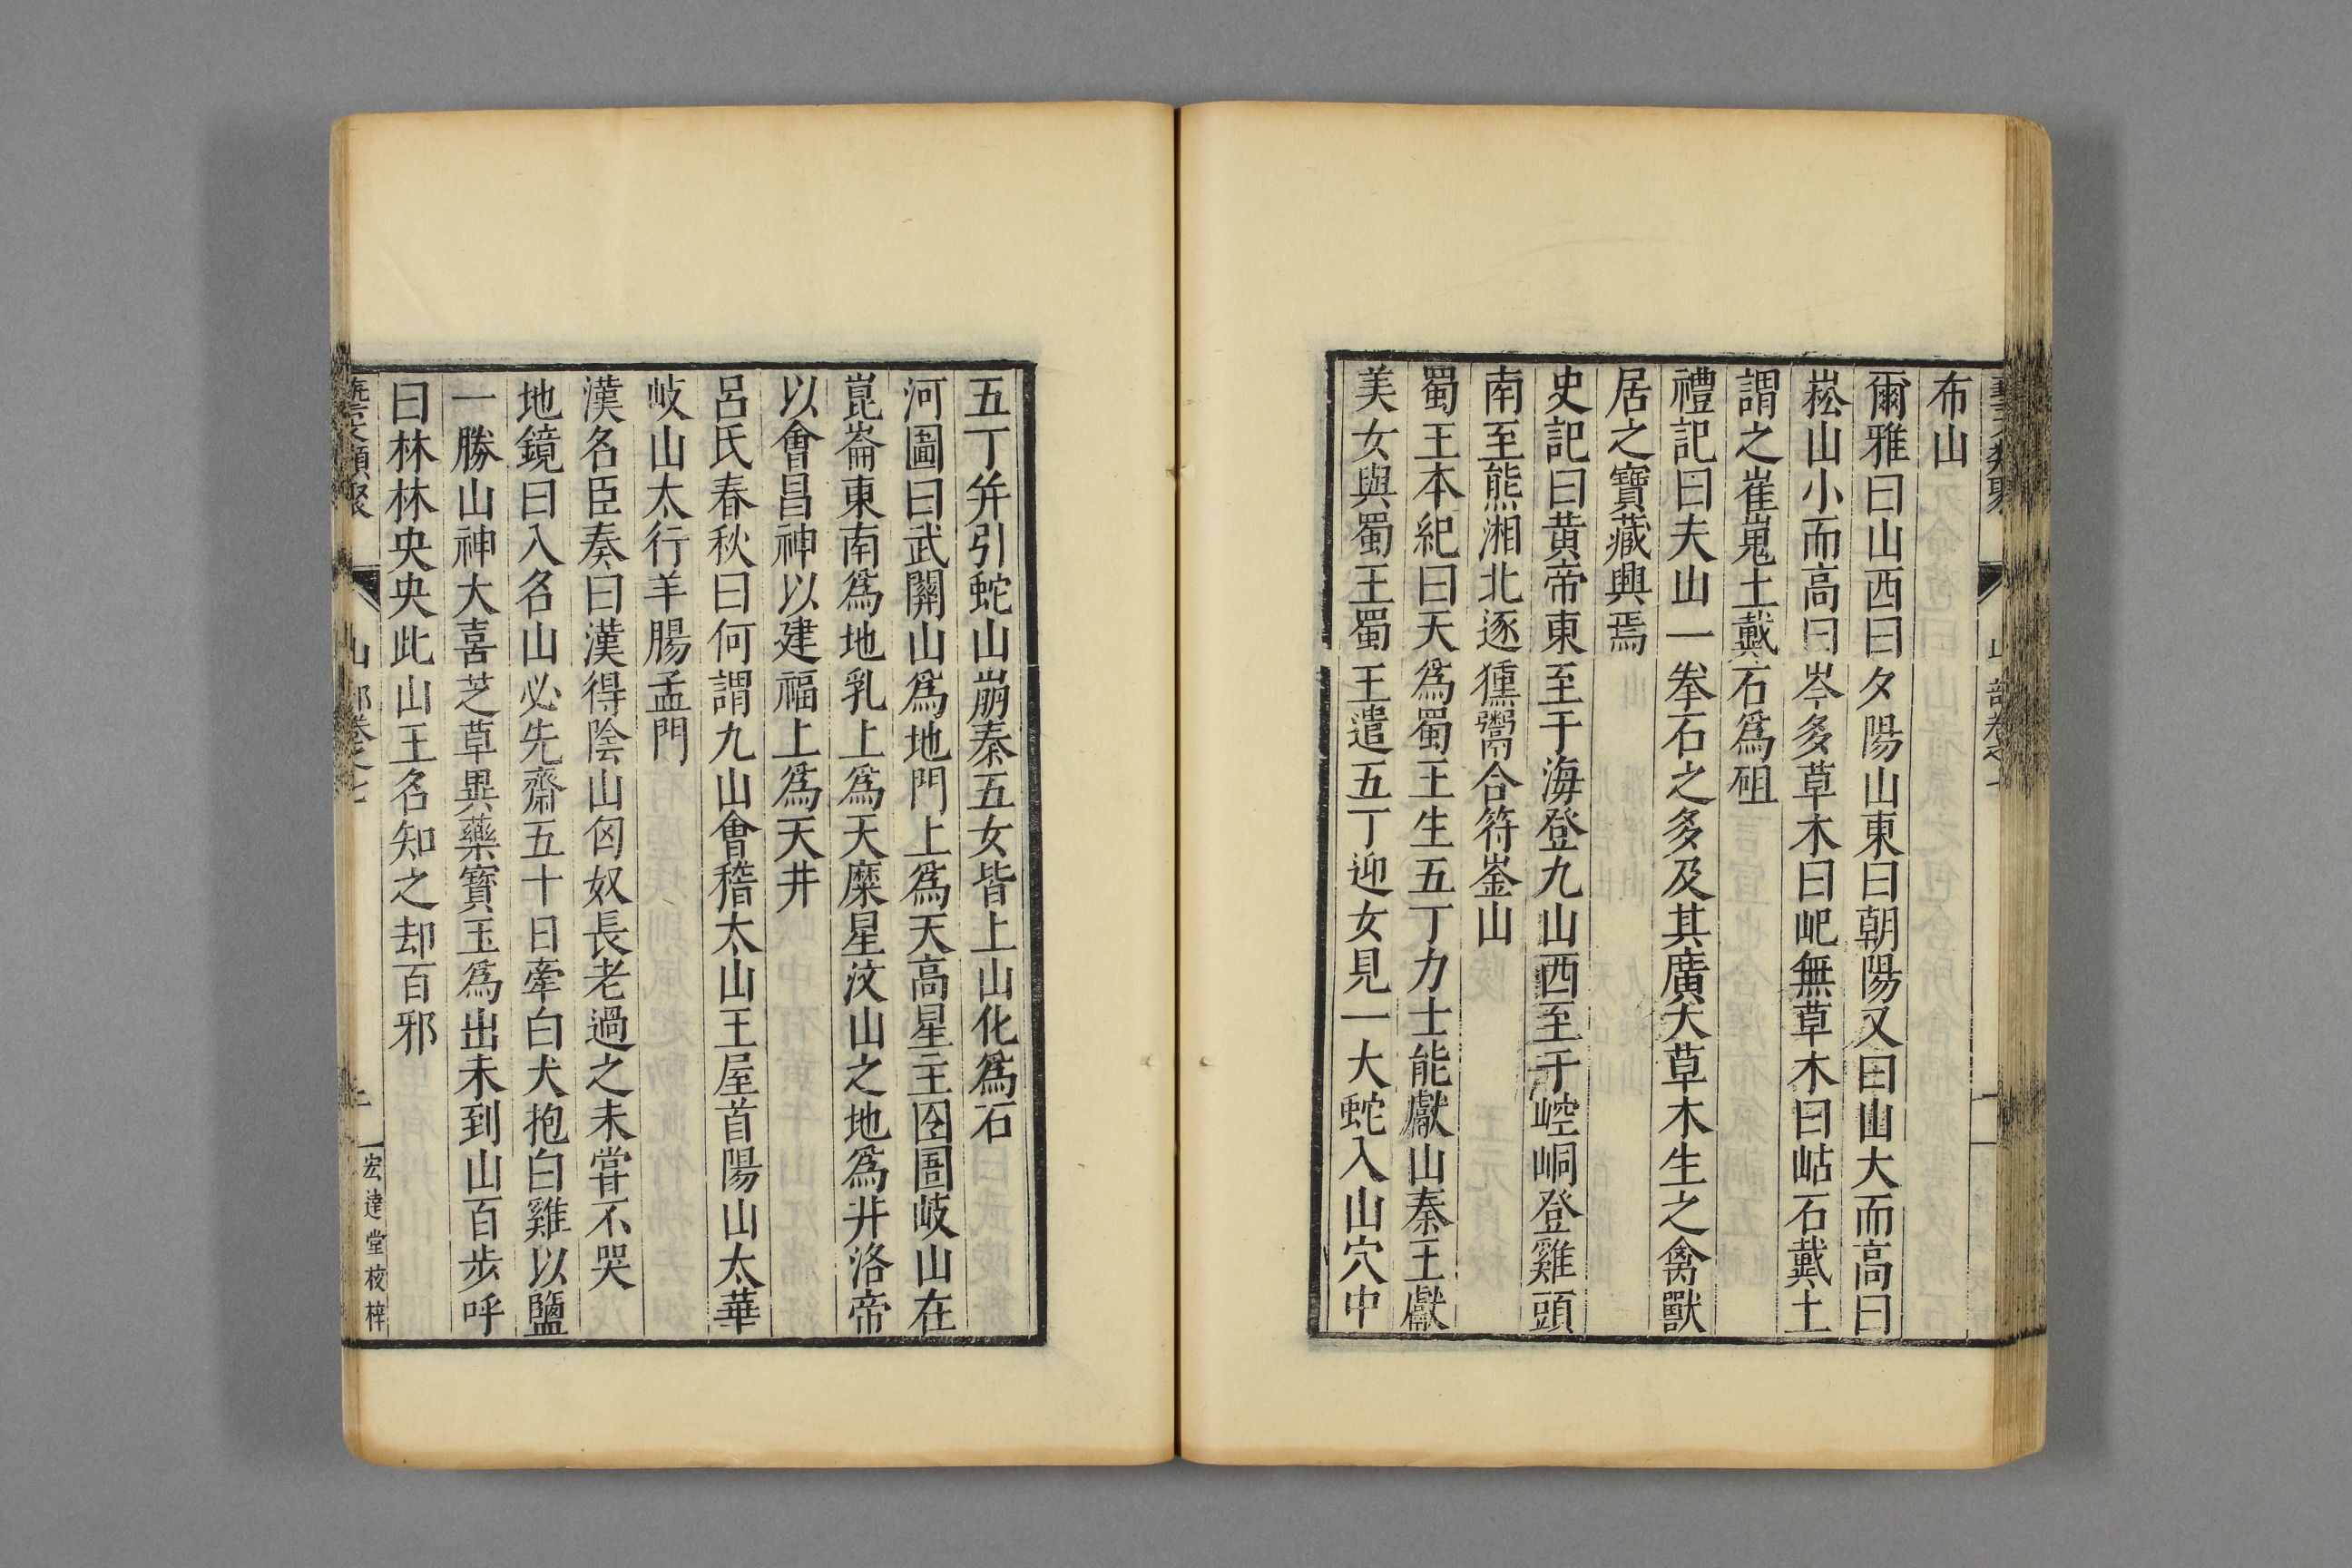 布山
爾雅曰山西曰夕陽山東曰朝陽又曰山大而高曰
崧山小而高曰岑多草木曰岵無草木曰峐石戴土
謂之崔嵬土戴石為砠
禮記曰夫山一拳石之多及其廣大草木生之禽獸
居之寶藏興焉
史記曰黄帝東至于海登九山西至于崆峒登雞頭
南至熊湘北逐獯鬻合符崟山
蜀王本紀曰天爲蜀王生五丁力士能獻山秦王獻
美女與蜀王蜀王遣五丁迎女見一大蛇入山穴中
五丁并引蛇山崩秦五女皆上山化爲石
河圖曰武關山爲地門上爲天高星主囹圄岐山在
崑崙東南爲地乳上爲天糜星汶山之地爲井洛帝
以會昌神以建福上爲天井
呂氏春秋曰何謂九山會稽太山王屋首陽山太華
岐山太行羊腸孟門
漢名臣奏曰漢得陰山匈奴長老過之未甞不哭
地鏡曰入名山必先齋五十日牽白犬抱白雞以鹽
一勝山神大喜芝草異藥寶玉爲出未到山百步呼
曰林林央央此山王名知之却百邪
藝文類聚
山部卷之七
二
宏達堂校梓